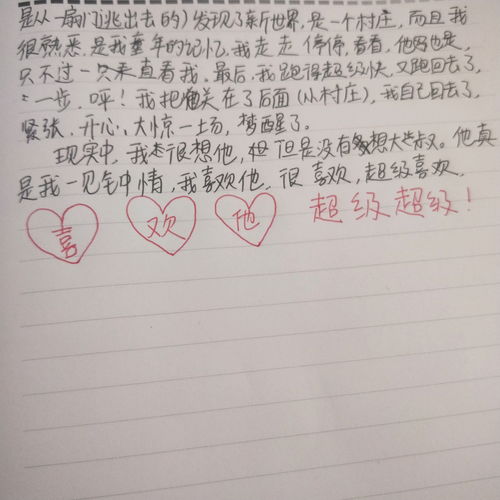 是从一扇门逃出去的）发现了新世界，是一个村庄，而且我
很熟悉，是我童年的记忆，我走走停停，看看，他也是，
只不过一只来直看我，最后，我跑得超级快，又跑回去了，
一步，呯！我把他关在了后面（从村庄），我自己回去了，
紧张、开心、大惊一场，梦醒了。
现实中，我很想他，但是没有想大叔。他真
是我一见钟情，我喜欢他，很喜欢，超级喜欢，
喜 欢 他 超级超级！